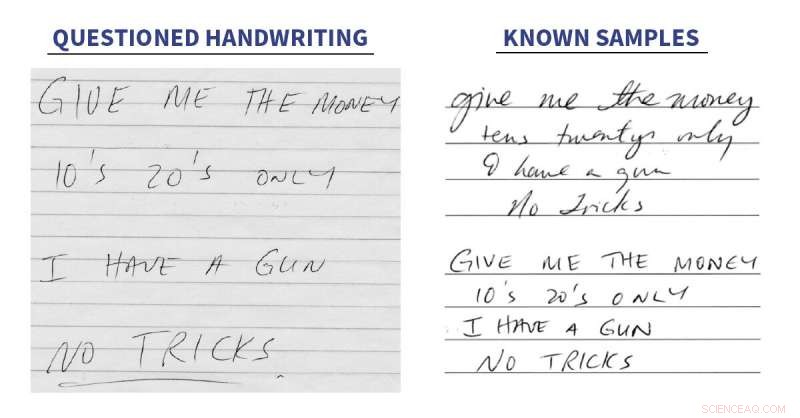 QUESTIONED HANDWRITING
GIVE ME THE MONEY
10's 20's ONLY
I HAVE A GUN
NO TRICKS.
KNOWN SAMPLES
give me the money
tens twentys only
I have a gun
No Tricks
GIVE ME THE MONEY
10's 20's ONLY
I HAVE A GUN
NO TRICKS
SCIENCEAQ.COM